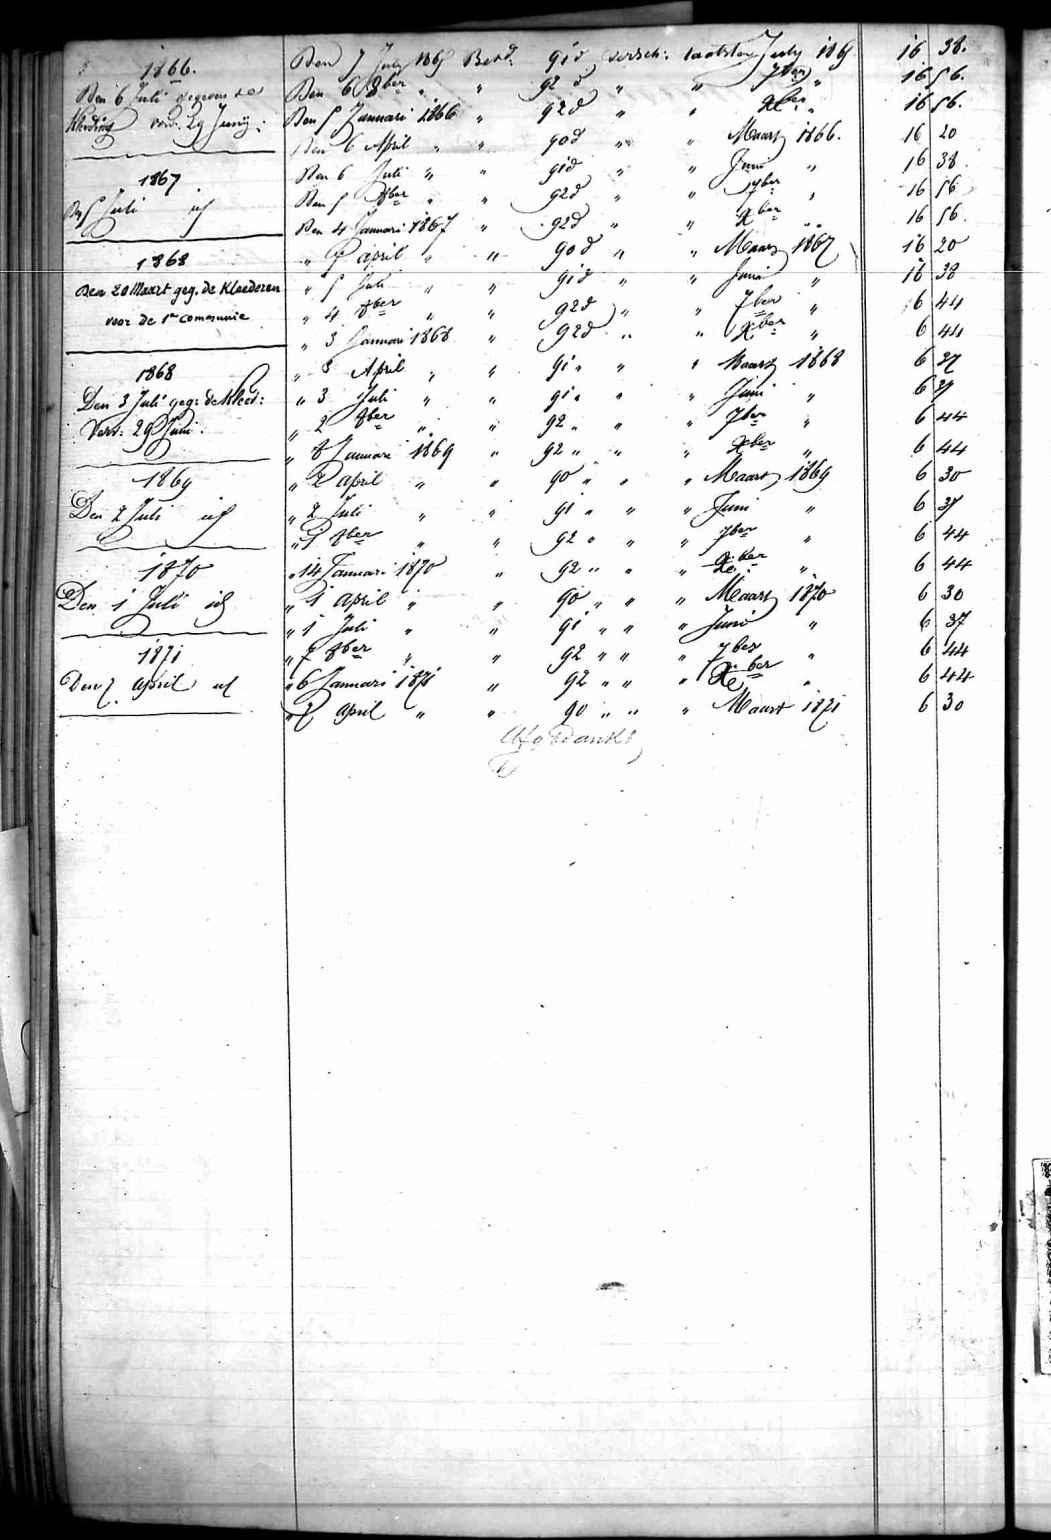 1866.
Den 6 Juli gegeven de
Kleeding verv. 29 Junij:
1867
Den 5 Juli id
1868
Den 20 Maart geg. de Kleederen
voor de 1e Communie
1868
Den 3 Juli geg: de Kleed:
Verv: 29 Juni.
1869
Den 2 Juli id
1870
Den 1 Juli id
1871
Den 7 April id
Den 7 July 1865 Betd. 91 d versch: laatsten July 1865 16 38.
Den 6 8ber " " 92 d " " 7ber " 16 56.
Den 5 Januari 1866 " 92 d " " Xber " 16 56.
Den 6 April " " 90 d " " Maart 1866. 16 20
Den 6 Juli " " 91 d " " Juni " 16 38
Den 5 8ber " " 92 d " " 7ber " 16 56
Den 4 Januari 1867 " 92 d " " Xber " 16 56.
" 5 april " " 90 d " " Maart 1867 16 20
" 5 Juli " " 91 d " " Juni " 16 38
" 4 8ber " " 92 d " " 7ber " 6 44
" 3 Januari 1868 " 92 d " " Xber " 6 44
" 3 April " " 91 " " " Maart 1868 6 37
" 3 Juli " " 91 " " " Juni " 6 37
" 2 8ber " " 92 " " " 7ber " 6 44
" 8 Januari 1869 " 92 " " " Xber " 6 44
" 2 april " " 90 " " " Maart 1869 6 30
" 2 Juli " " 91 " " " Juni " 6 37
" 1 8ber " " 92 " " " 7ber " 6 44
" 14 Januari 1870 " 92 " " " Xber " 6 44
" 1 april " " 90 " " " Maart 1870 6 30
" 1 Juli " " 91 " " " Juni " 6 37
" 7 8ber " " 92 " " " 7ber " 6 44
" 6 Januari 1871 " 92 " " " Xber " 6 44
" 7 April " " 90 " " " Maart 1871 6 30
Afgedankt